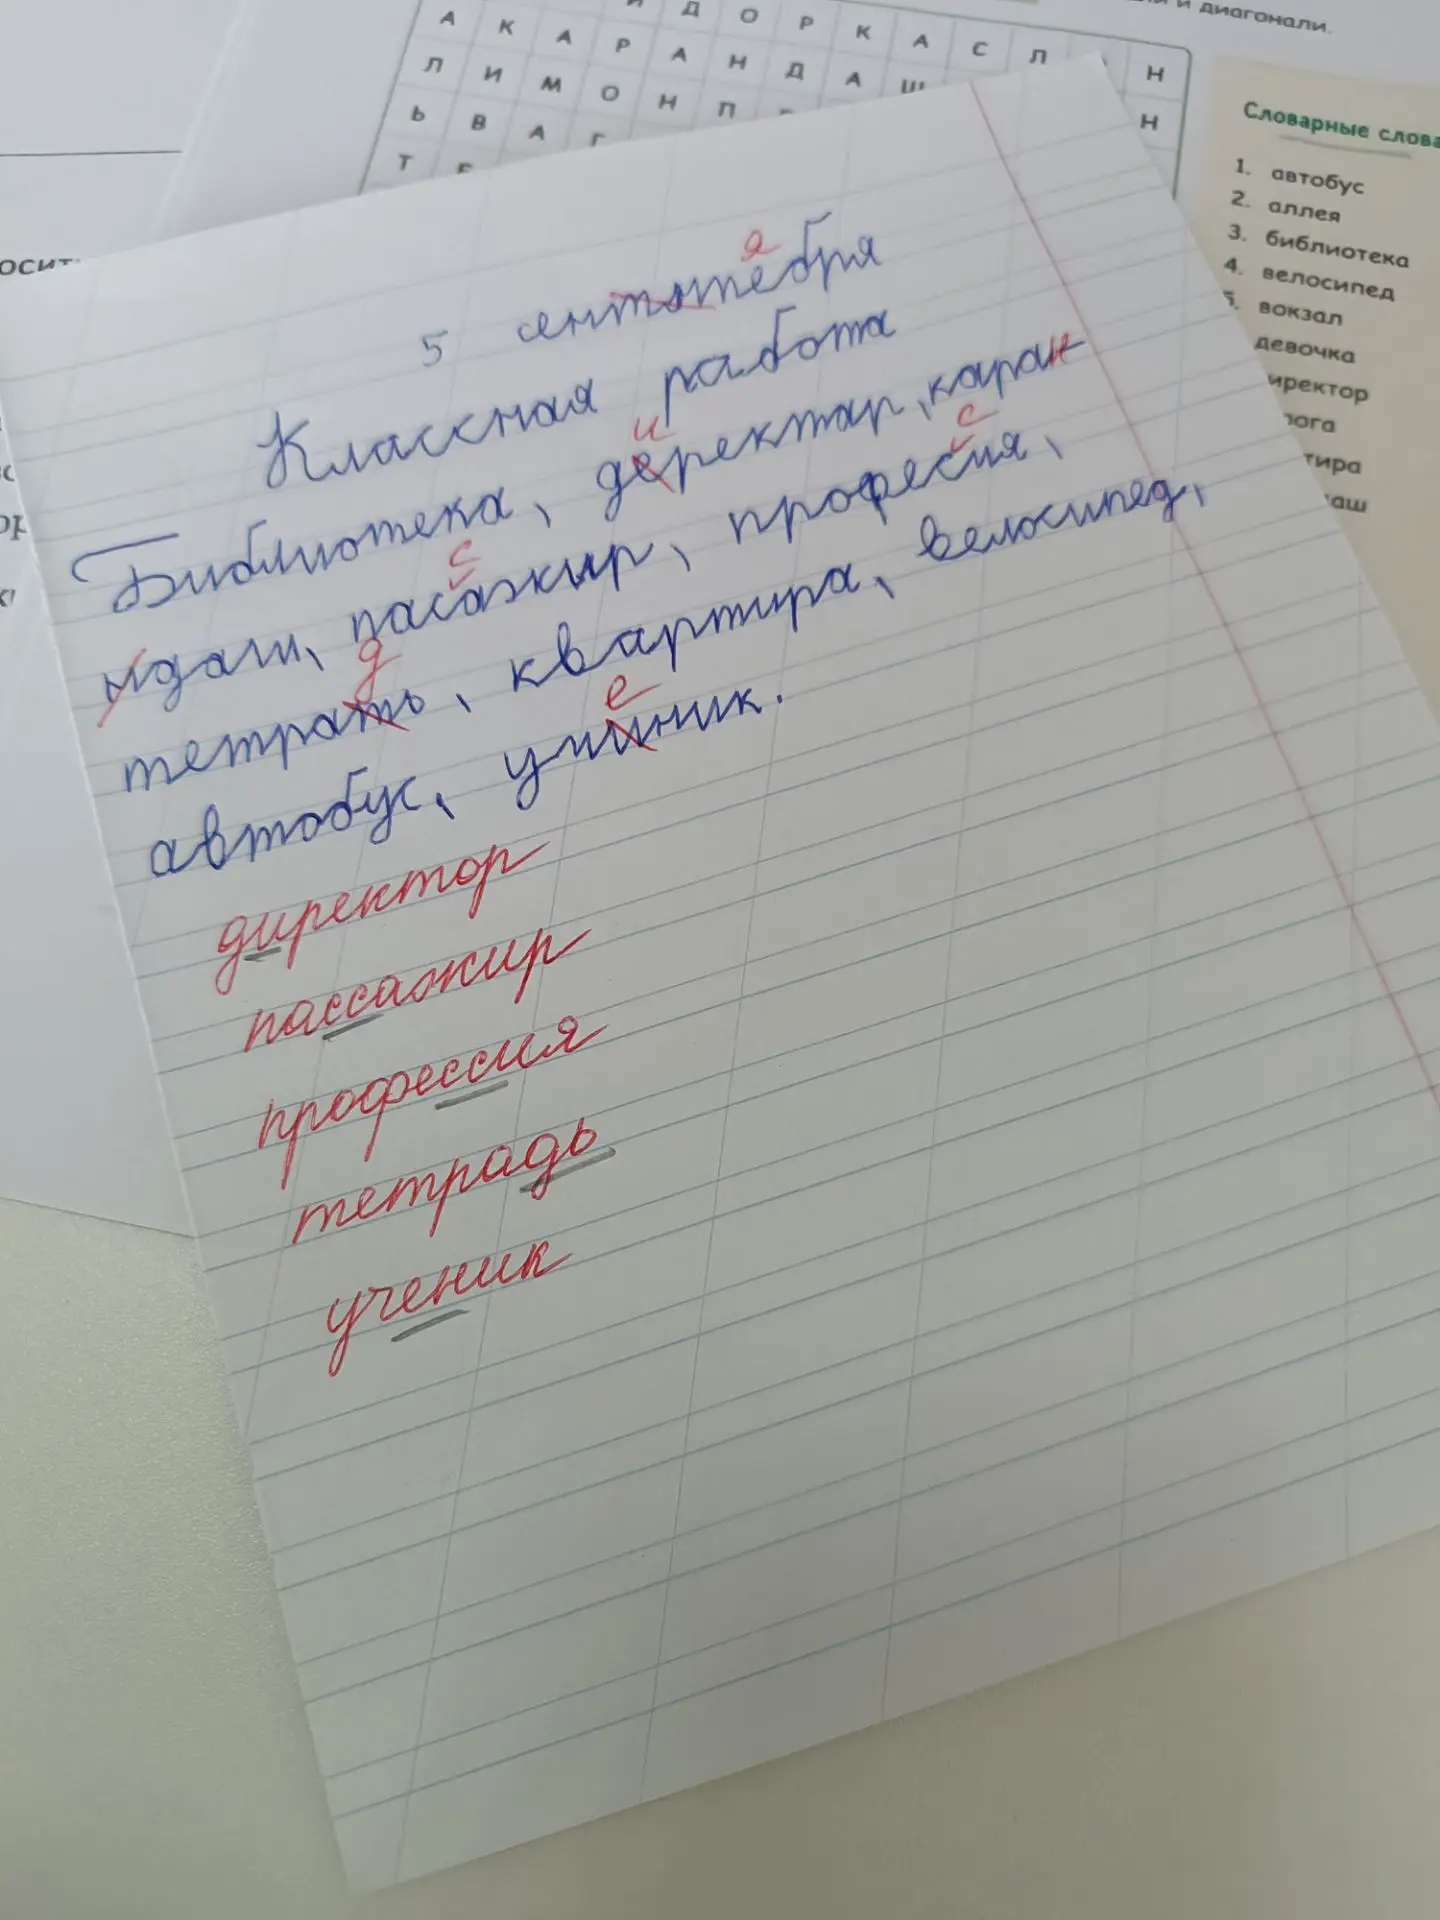 и диагонали.
Д О Р К А С Л Н
А К А Р А Н Д А Ш Н
Л И М О Н П
Ь В А Г
Т Е
Словарные слова
1. автобус
2. аллея
3. библиотека
4. велосипед
5. вокзал
девочка
иректор
рога
ртира
аш
я
5 сентытебря
Классная работа
и
Библиотека, деректар, каран
с с
ндаш, пасажыр, професия,
д
тетрать, квартира, велосипед,
е
автобус, учиник.
директор
пассажир
профессия
тетрадь
ученик